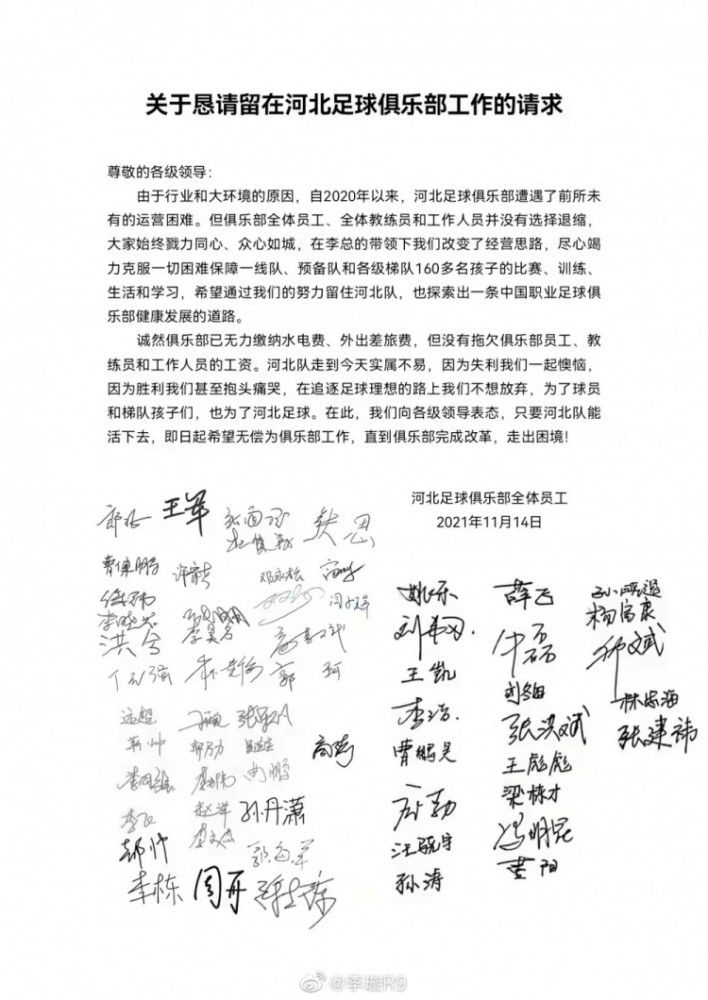 关于恳请留在河北足球俱乐部工作的请求
尊敬的各级领导：
由于行业和大环境的原因，自2020年以来，河北足球俱乐部遭遇了前所未
有的运营困难。但俱乐部全体员工、全体教练员和工作人员并没有选择退缩，
大家始终戮力同心、众心如城，在李总的带领下我们改变了经营思路，尽心竭
力克服一切困难保障一线队、预备队和各级梯队160多名孩子的比赛、训练、
生活和学习，希望通过我们的努力留住河北队，也探索出一条中国职业足球俱
乐部健康发展的道路。
诚然俱乐部已无力缴纳水电费、外出差旅费，但没有拖欠俱乐部员工、教
练员和工作人员的工资。河北队走到今天实属不易，因为失利我们一起懊恼，
因为胜利我们甚至抱头痛哭，在追逐足球理想的路上我们不想放弃，为了球员
和梯队孩子们，也为了河北足球。在此，我们向各级领导表态，只要河北队能
活下去，即日起希望无偿为俱乐部工作，直到俱乐部完成改革，走出困境！
河北足球俱乐部全体员工
2021年11月14日
王军
洪兮
郭 珂
远超
孙丹潇
郝帅
李栋 周丹
姚乐 薛飞
杨富康
王凯
李浩
刘翔
林忠海
曹鹏昊 张洪斌 张建祎
王彪彪
梁栋才
冯明昆
孙涛 董阳
@李璇R9